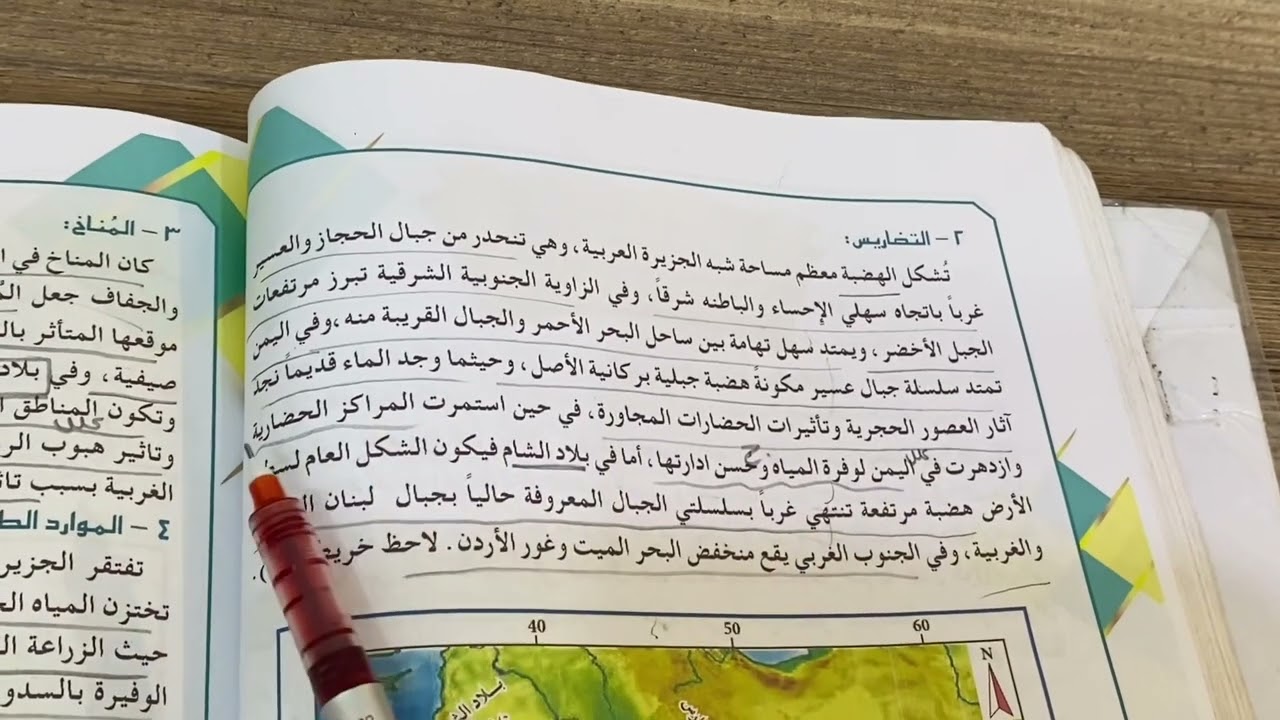 ٢ - التضاريس:
تُشكل الهضبة معظم مساحة شبه الجزيرة العربية، وهي تنحدر من جبال الحجاز والعسير
غرباً باتجاه سهلي الإحساء والباطنه شرقاً، وفي الزاوية الجنوبية الشرقية تبرز مرتفعات
الجبل الأخضر، ويمتد سهل تهامة بين ساحل البحر الأحمر والجبال القريبة منه، وفي اليمن
تمتد سلسلة جبال عسير مكونةً هضبة جبلية بركانية الأصل، وحيثما وجد الماء قديماً نجد
آثار العصور الحجرية وتأثيرات الحضارات المجاورة، في حين استمرت المراكز الحضارية
وازدهرت في اليمن لوفرة المياه وحسن ادارتها، أما في بلاد الشام فيكون الشكل العام
الأرض هضبة مرتفعة تنتهي غرباً بسلسلتي الجبال المعروفة حالياً بجبال لبنان
والغربية، وفي الجنوب الغربي يقع منخفض البحر الميت وغور الأردن. لاحظ
40 50 60
N
بلاد
٣ - المُناخ:
كان المناخ في
والجفاف جعل
موقعها المتأثر
صيفية، وفي بلاد
وتكون المناطق
وتاثير هبوب
الغربية بسبب
٤ - الموارد
تفتقر
تختزن المياه
حيث الزراعة
الوفيرة بالسدو